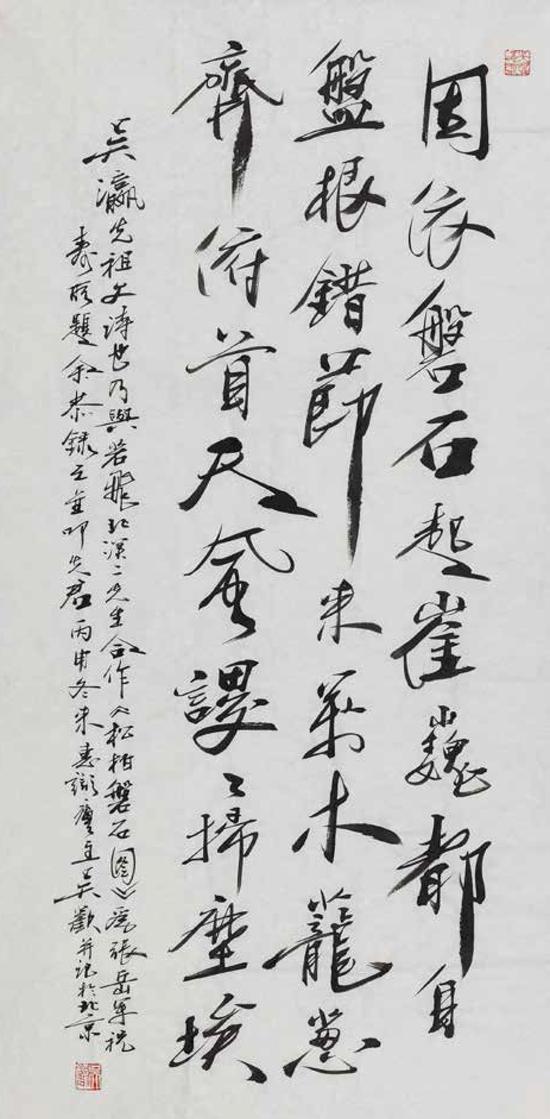 固依磐石起崔巍都自
盤根錯節来萬木籠葱
齊俯首天風謖〻掃塵埃
吴瀛先祖文詩也乃與若飛北溟二先生合作《松柏磐石圖》為張岳軍祝
壽所題余恭録之並叩先君丙申冬来惠謝廔主吴歡并記於北京